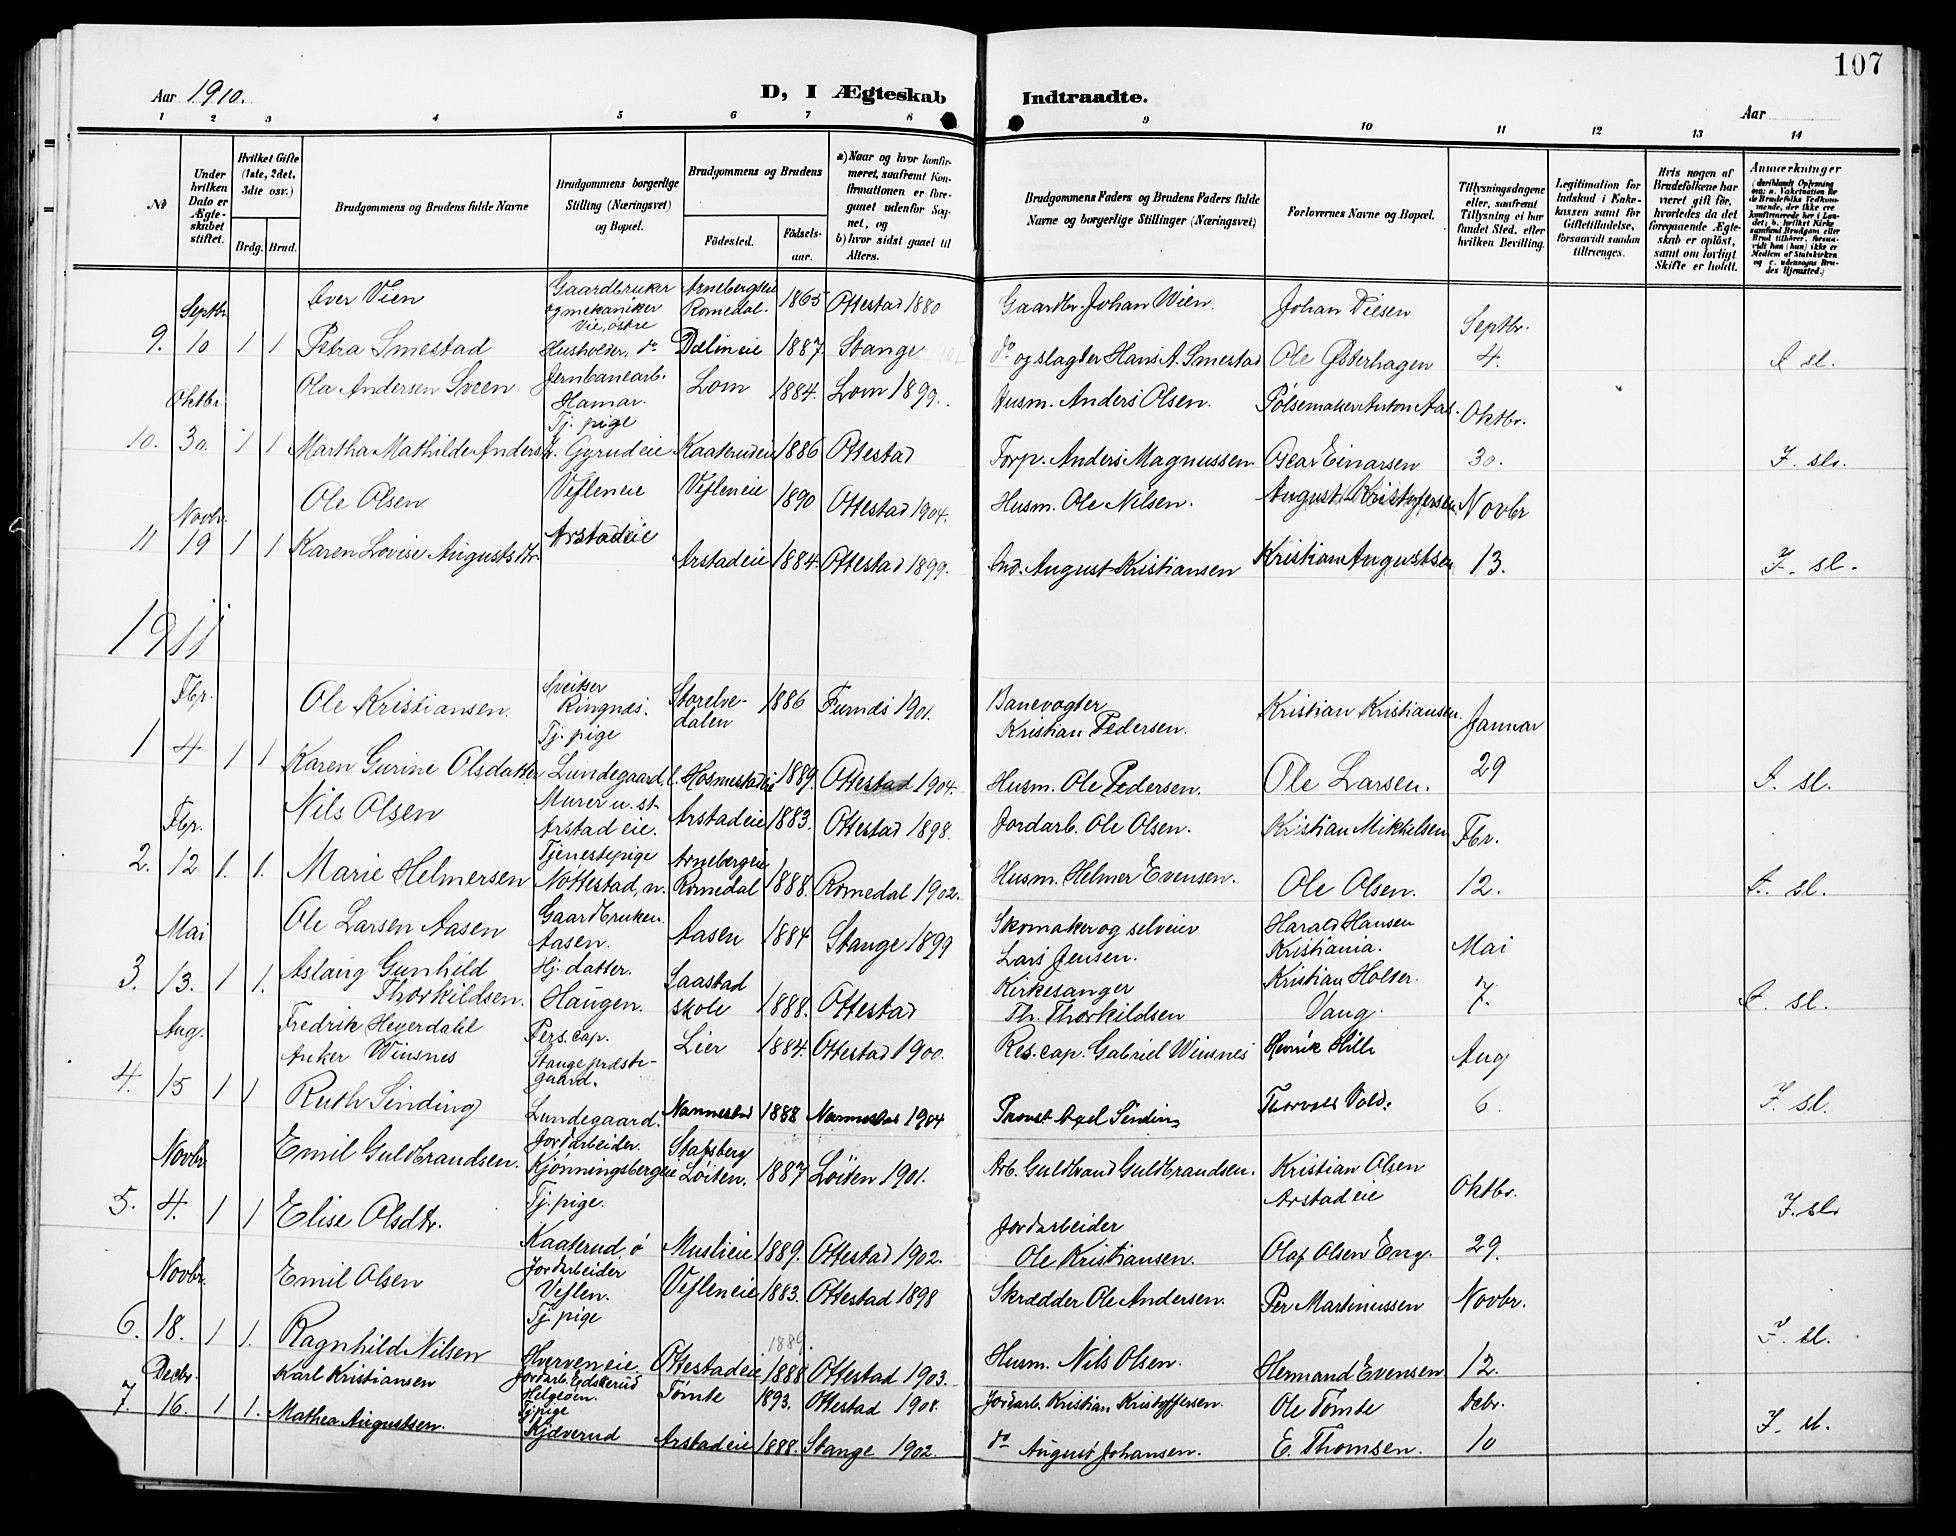 107
Aar 1910.
D, I Ægteskab Indtraadte.
Aar
1 2 3 4 5 6 7 8 9 10 11 12 13 14
No
Under hvilken Dato er Ægteskabet stiftet.
Hvilket Gifte (1ste, 2det, 3die osv.)
Brdg. Brud.
Brudgommens og Brudens fulde Navne
Brudgommens borgerlige Stilling (Næringsvei) og Bopæl.
Brudgommens og Brudens
Födested. Födsels-aar.
a) Naar og hvor konfirmeret, saafremt Konfirmationen er foregaaet udenfor Sognet, og
b) hvor sidst gaaet til Alters.
Brudgommens Faders og Brudens Faders fulde Navne og borgerlige Stillinger (Næringsvei)
Forlovernes Navne og Bopæl.
Tillysningsdagene eller, saafremt Tillysning ei har fundet Sted, efter hvilken Bevilling.
Legitimation for Indskud i Enkekassen samt for Giftetilladelse, forsaavidt saadan tiltrænges.
Hvis nogen af Brudefolkene har været gift før, hvorledes da det foregaaende Ægteskab er oplöst, samt om lovligt Skifte er holdt.
Anmærkninger
Septbr. Iver Vien Gaardbruker og mekaniker Vie, östre Arnebergseie Romedal. 1865 Ottestad 1880 Gaardbr. Johan Wien. Johan Diesen Septbr.
9. 10 1 1 Petra Smestad Husholder, do. Dælineie 1887 Stange do og slagter Hans A. Smestad Ole Østerhagen 4. I sl.
Oktbr. Ola Andersen Sveen Jernbanearb. Hamar. Lom 1884. Lom 1899. Husm. Anders Olsen. Pölsemaker Anton Aas. Oktbr.
10. 30. 1 1 Martha Mathilde Anders Tj. pige Gyrudeie Kaaterudeie 1886 Ottestad Torp. Anders Magnussen Oscar Einarsen 30. I. sl.
Novbr. Ole Olsen Vefleneie Vefleneie 1890 Ottestad 1904. Husm. Ole Nilsen. August Kristoffersen Novbr
11 19 1 1 Karen Lovise Augustsdtr. Arstadeie Arstadeie 1884. Ottestad 1899. Ind. August Kristiansen Kristian Augustsen 13. I. sl.
1911
Fbr. Ole Kristiansen. Sveitser Ringnæs. Storelvedalen 1886 Furnæs 1901. Banevogter Kristian Pedersen. Kristian Kristiansen. Januar
1 4 1 1 Karen Gurine Olsdatter Tj. pige Lundegaard, l. Hosmestadeie 1889. Ottestad 1904. Husm. Ole Pedersen. Ole Larsen. 29 I. sl.
Fbr. Nils Olsen Murer u. st. Arstadeie. Arstadeie 1883. Ottestad 1898. Jordarb. Ole Olsen. Kristian Mikkelsen Fbr.
2. 12 1. 1. Marie Helmersen Tjenestepige Nöttestad, n. Arnebergeie Romedal 1888. Romedal 1902. Husm. Helmer Evensen. Ole Olsen. 12. I. sl.
Mai Ole Larsen Aasen Gaardbruker. Aasen. Aasen 1884 Stange 1899 Skomaker og selveier Lars Jensen. Harald Hansen Kristiania. Mai
3. 13. 1 1. Aslaug Gunhild Thorkildsen. Hj. datter. Haugen. Saastad skole 1888. Ottestad Kirkesanger Th. Thorkildsen Kristian Holter. Vang. 7. I. sl.
Aug. Fredrik Heyerdahl Anker Winsnes Pers. cap. Stange præstegaard. Lier 1884. Ottestad 1900. Res. cap. Gabriel Winsnes Henrik Hille Aug
4. 15 1 1 Ruth Sinding Lundegaard. Nannestad 1888 Nannestad 1904 Provst Axel Sinding Thorvald Vold. 6. I. sl.
Novbr. Emil Guldbrandsen. Jordarbeider. Kjönningsbergeie Stafsberg Löiten. 1887 Löiten 1901. Arb. Guldbrand Guldbrandsen. Kristian Olsen Arstadeie Oktbr.
5. 4. 1 1 Elise Olsdtr. Tj. pige. Kaaterud, ö Muslieie 1889. Ottestad 1902. Jordarbeider Ole Kristiansen. Olaf Olsen Eng. 29. I. sl.
Novbr. Emil Olsen Jordarbeider Veflen. Vefleneie 1883. Ottestad 1898 Skrædder Ole Andersen. Per Martinussen Novbr.
6. 18. 1 1. Ragnhild Nilsen Tj. pige Hverveneie Ottestadeie 1889. 1888 Ottestad 1903. Husm. Nils Olsen. Hermand Evensen 12. I. sl.
Decbr. Karl Kristiansen Jordarb. Helgeöen. Tomte 1893. Ottestad 1908. Jordarb. Kristian Kristoffersen. Ole Tomte Decbr.
7. 16. 1 1. Mathea Augustsen. Tj. pige Kjæverud Arstadeie 1888. Stange 1902. do August Johansen. E. Thomsen. 10 I. sl.